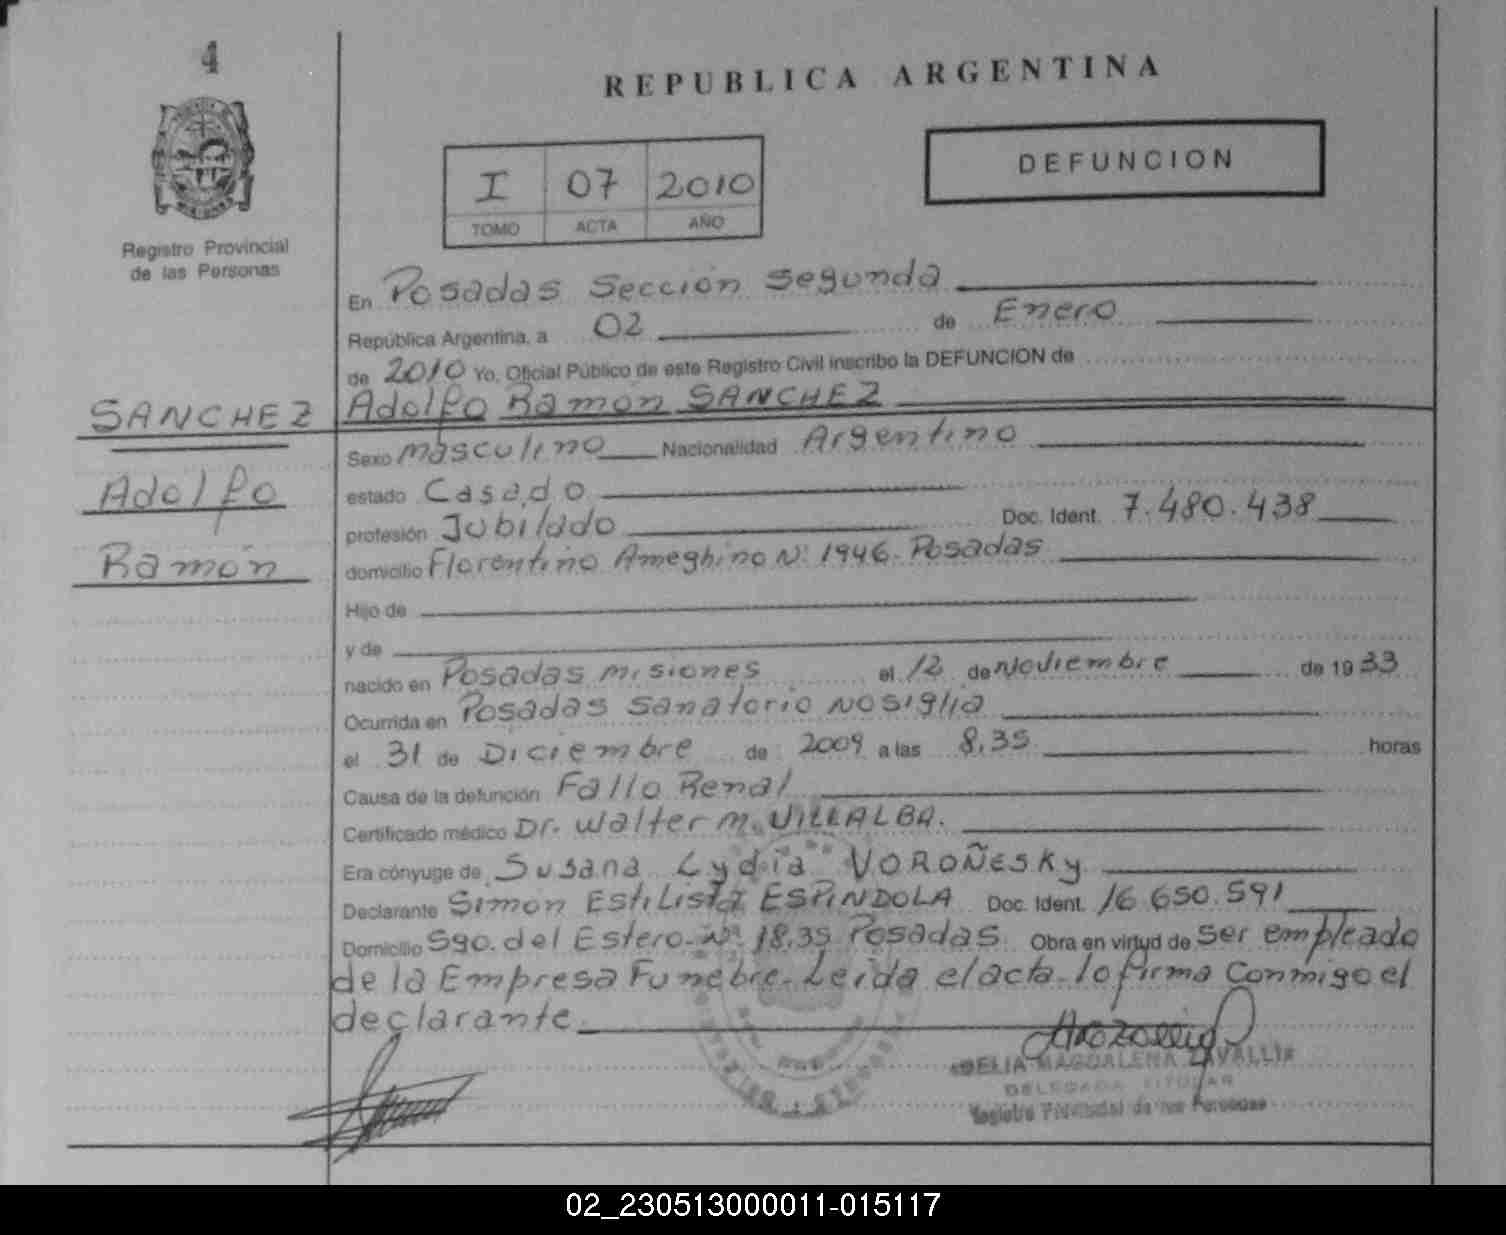 4
REPUBLICA ARGENTINA
Registro Provincial
de las Personas
I 07 2010
TOMO ACTA AÑO
DEFUNCION
En Posadas Sección Segunda
República Argentina, a 02 de Enero
de 2010 Yo, Oficial Público de este Registro Civil inscribo la DEFUNCION de
Adolfo Ramón SANCHEZ
SANCHEZ
Adolfo
Ramón
Sexo Masculino Nacionalidad Argentino
estado Casado
profesión Jubilado Doc. Ident. 7.480.438
domicilio Florentino Ameghino Nº 1946. Posadas
Hijo de
y de
nacido en Posadas Misiones el 12 de Noviembre de 1933
Ocurrida en Posadas Sanatorio NOSIGLIA
el 31 de Diciembre de 2009 a las 8,35 horas
Causa de la defunción Fallo Renal
Certificado médico Dr. Walter M. VILLALBA.
Era cónyuge de Susana Lydia VOROÑESKY
Declarante Simón Estilista ESPINDOLA Doc. Ident. 16.650.591
Domicilio Sgo. del Estero Nº 18,35 Posadas. Obra en virtud de ser empleado
de la Empresa Funebre. Leida el acta lo firma Conmigo el
declarante
DELIA MAGDALENA ZAVALLIA
DELEGADA TITULAR
Registro Provincial de las Personas
02_230513000011-015117